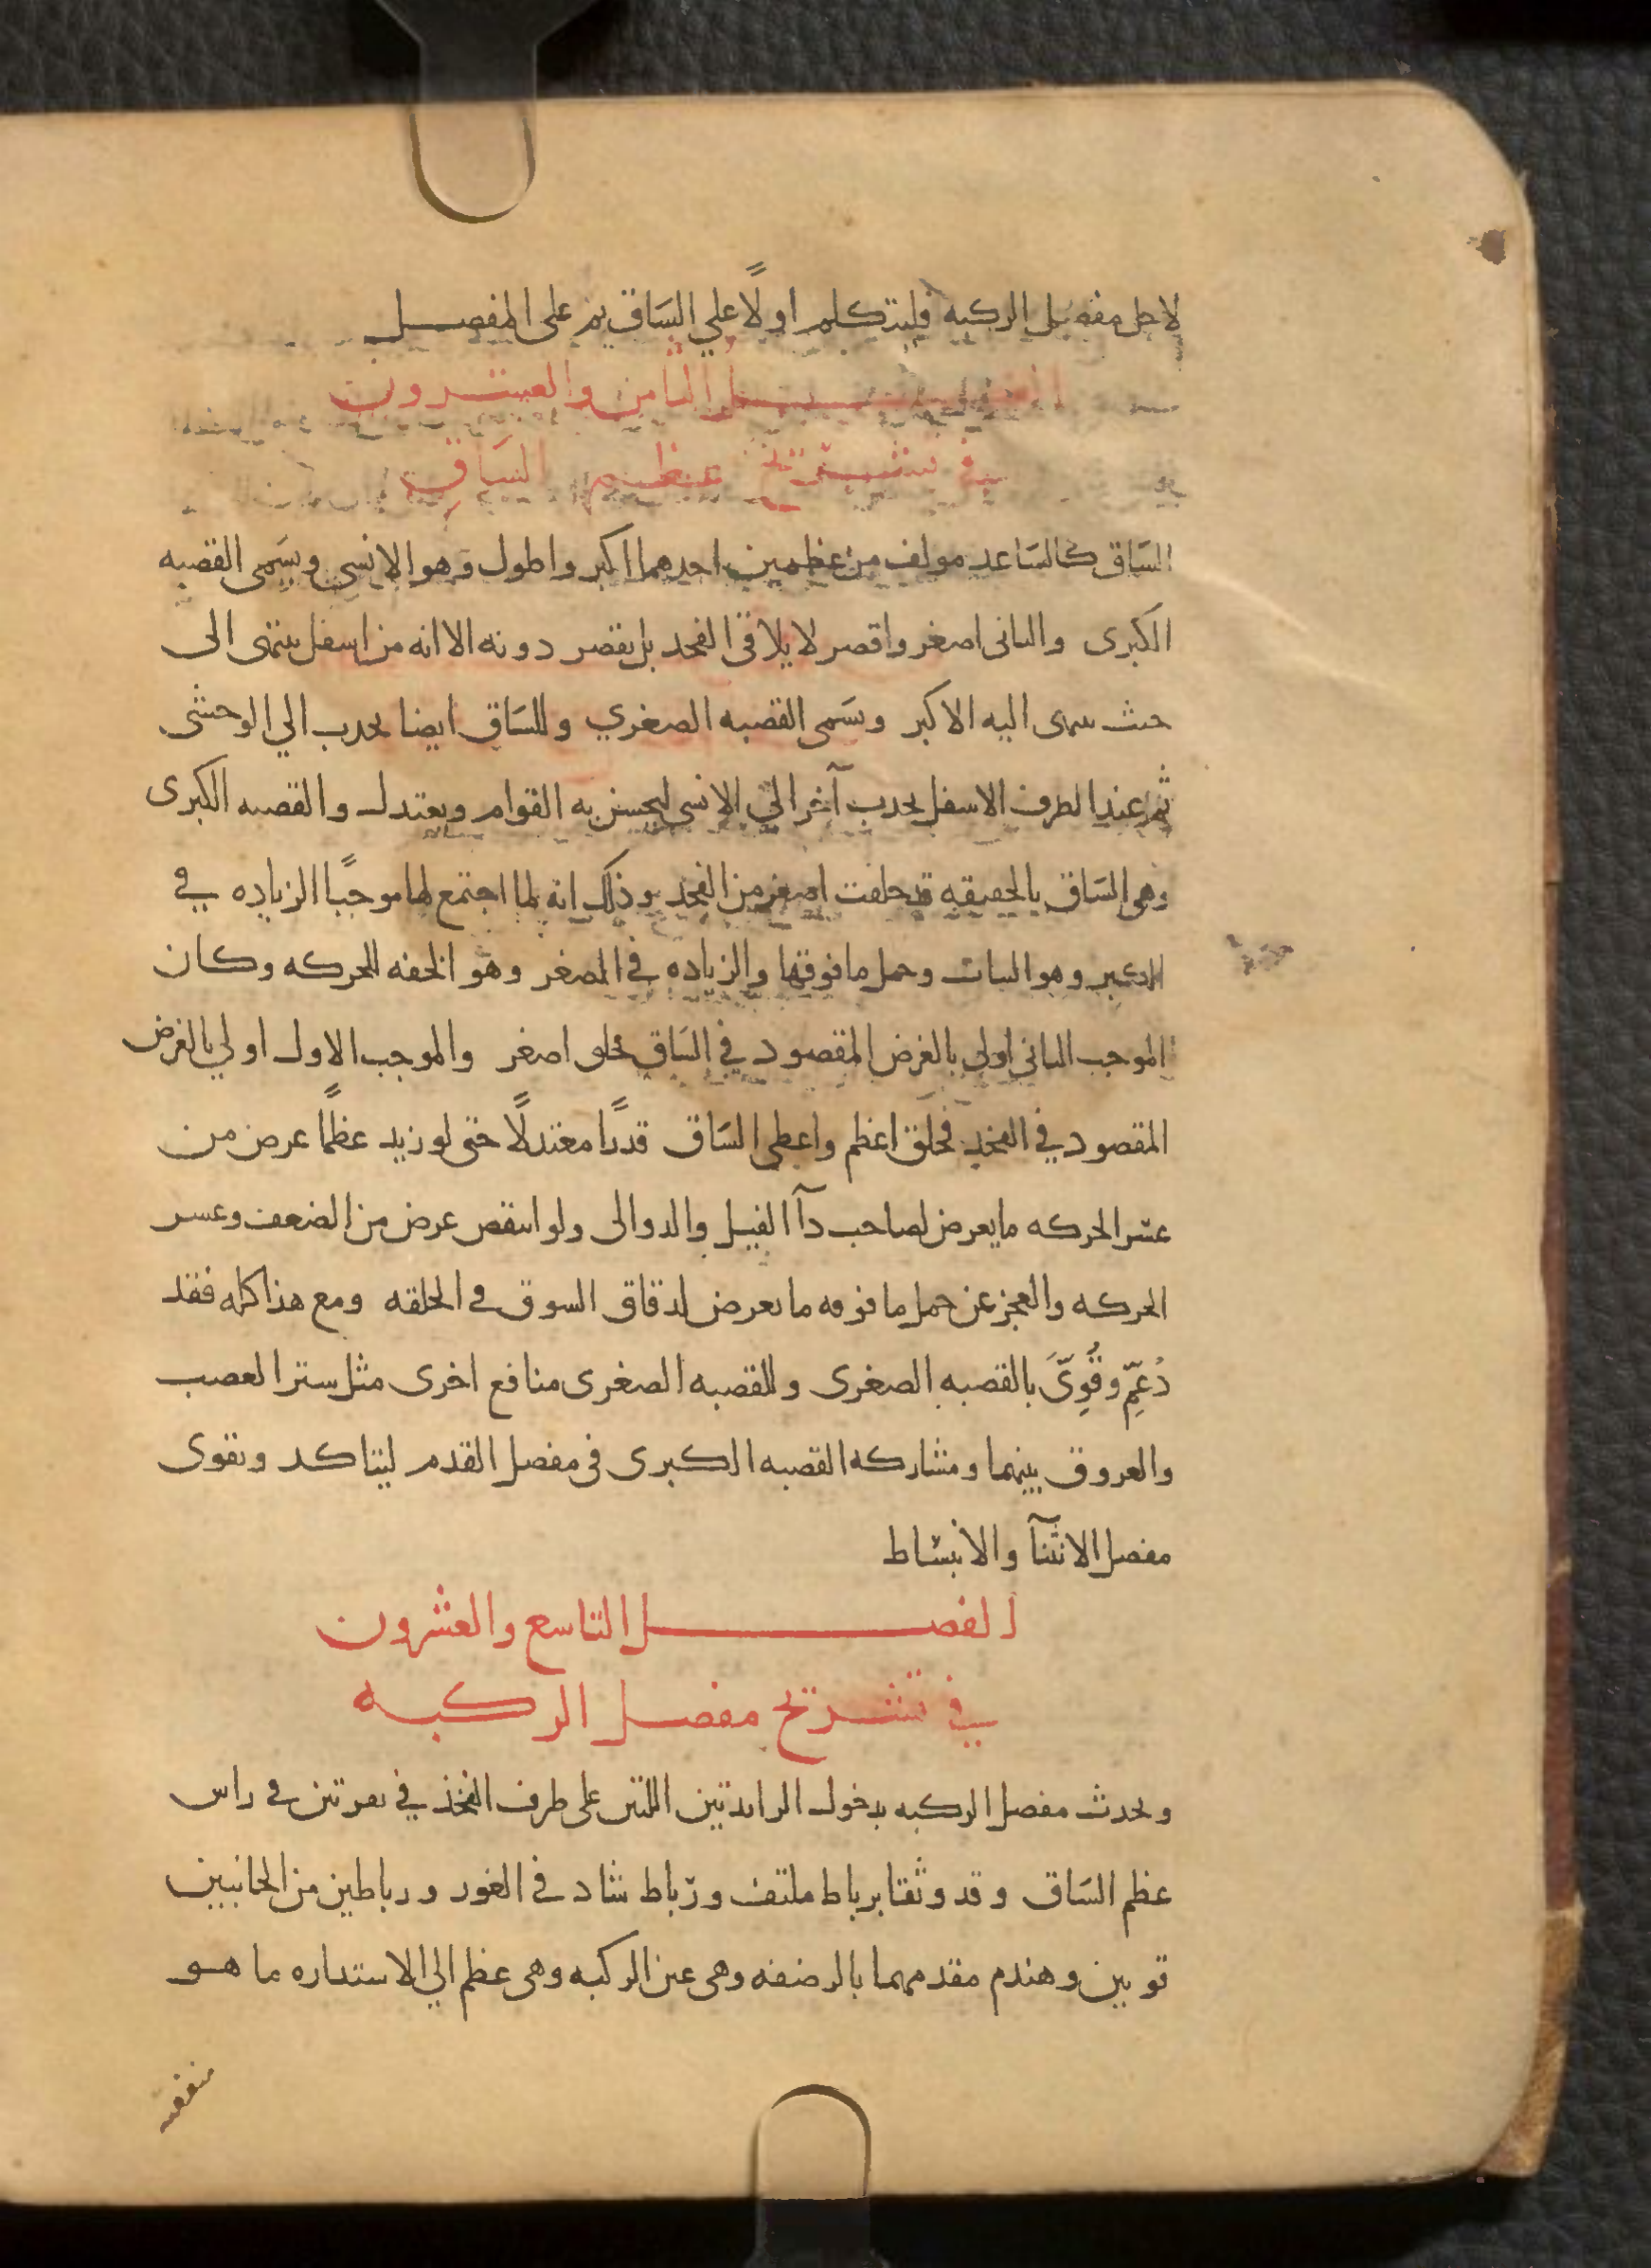 لاجل مفصل الركبه فليتكلم اولًا علي السَاق ثم على المفصل
الفصل الثامن والعشرون
في تشريح عظم السَاق
السَاق كالسَاعد مولف من عظمين احدهما اكبر واطول وهو الانسي وسَمى القصبه
الكبرى والثانى اصغر واقصر لا يلاقى الفخد بل يقصر دونه الا انه من اسفل ينتهى الى
حيث ينتهى اليه الاكبر وسَمى القصبه الصغري وللسَاق ايضا تحدب الي الوحشى
ثم عند الطرف الاسفل تحدب آخر الي الانسى ليحسن به القوام ويعتدل والقصبه الكبرى
وهى السَاق بالحقيقه قد خلقت اصغر من الفخد وذلك انه لما اجتمع لها موجبًا الزياده في
الكبر وهو الثبات وحمل ما فوقها والزياده في الصغر وهو الخفه للحركه وكان
الموجب الثانى اولى بالغرض المقصود في السَاق خلق اصغر والموجب الاول اولي بالغرض
المقصود في الفخد فخلق اعظم واعطى السَاق قدرًا معتدلًا حتى لو زيد عظمًا عرض من
عسر الحركه ما يعرض لصاحب دآ الفيل والدوالى ولو انتقص عرض من الضعف وعسر
الحركه والعجز عن حمل ما فوقه ما يعرض لدقاق السوق في الخلقه ومع هذا كله فقد
دُعِّم وقُوِّىَ بالقصبه الصغرى وللقصبه الصغرى منافع اخرى مثل ستر العصب
والعروق بينهما ومشاركه القصبه الكبرى فى مفصل القدم ليتاكد ويقوى
مفصل الانثنآ والانبسَاط
الفصل التاسع والعشرون
في تشريح مفصل الركبه
ويحدث مفصل الركبه بدخول الزايدتين اللتين على طرف الفخذ في نقرتين في راس
عظم السَاق وقد وثقتا برباط ملتف ورباط شاد في الغور ورباطين من الجانبين
قويين وهندم مقدمهما بالرضفه وهى عين الركبه وهى عظم الي الاستداره ما هو